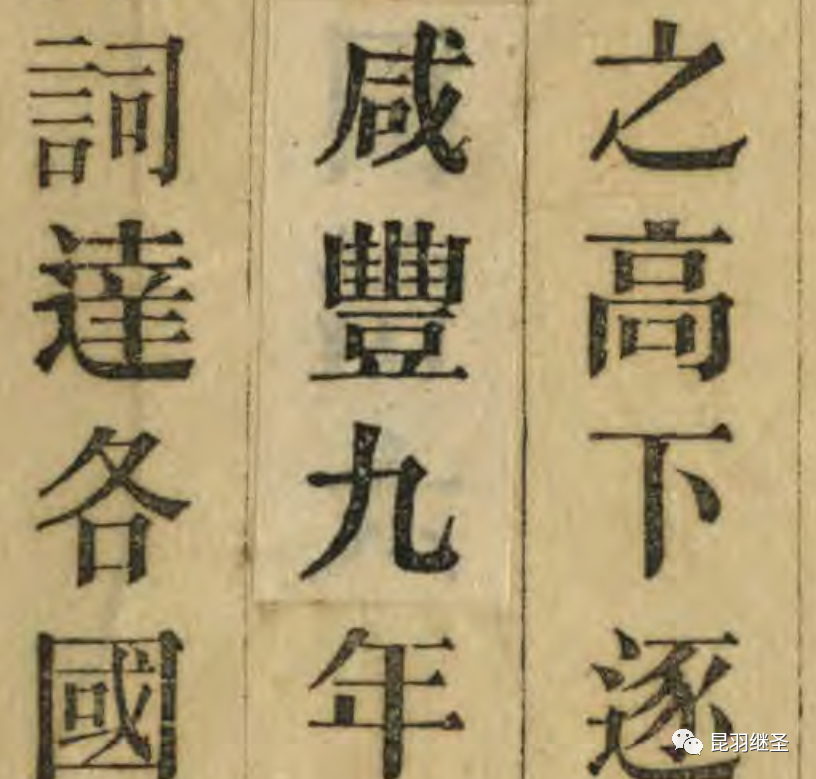 之高下逐
咸豐九年
詞達各國
昆羽继圣